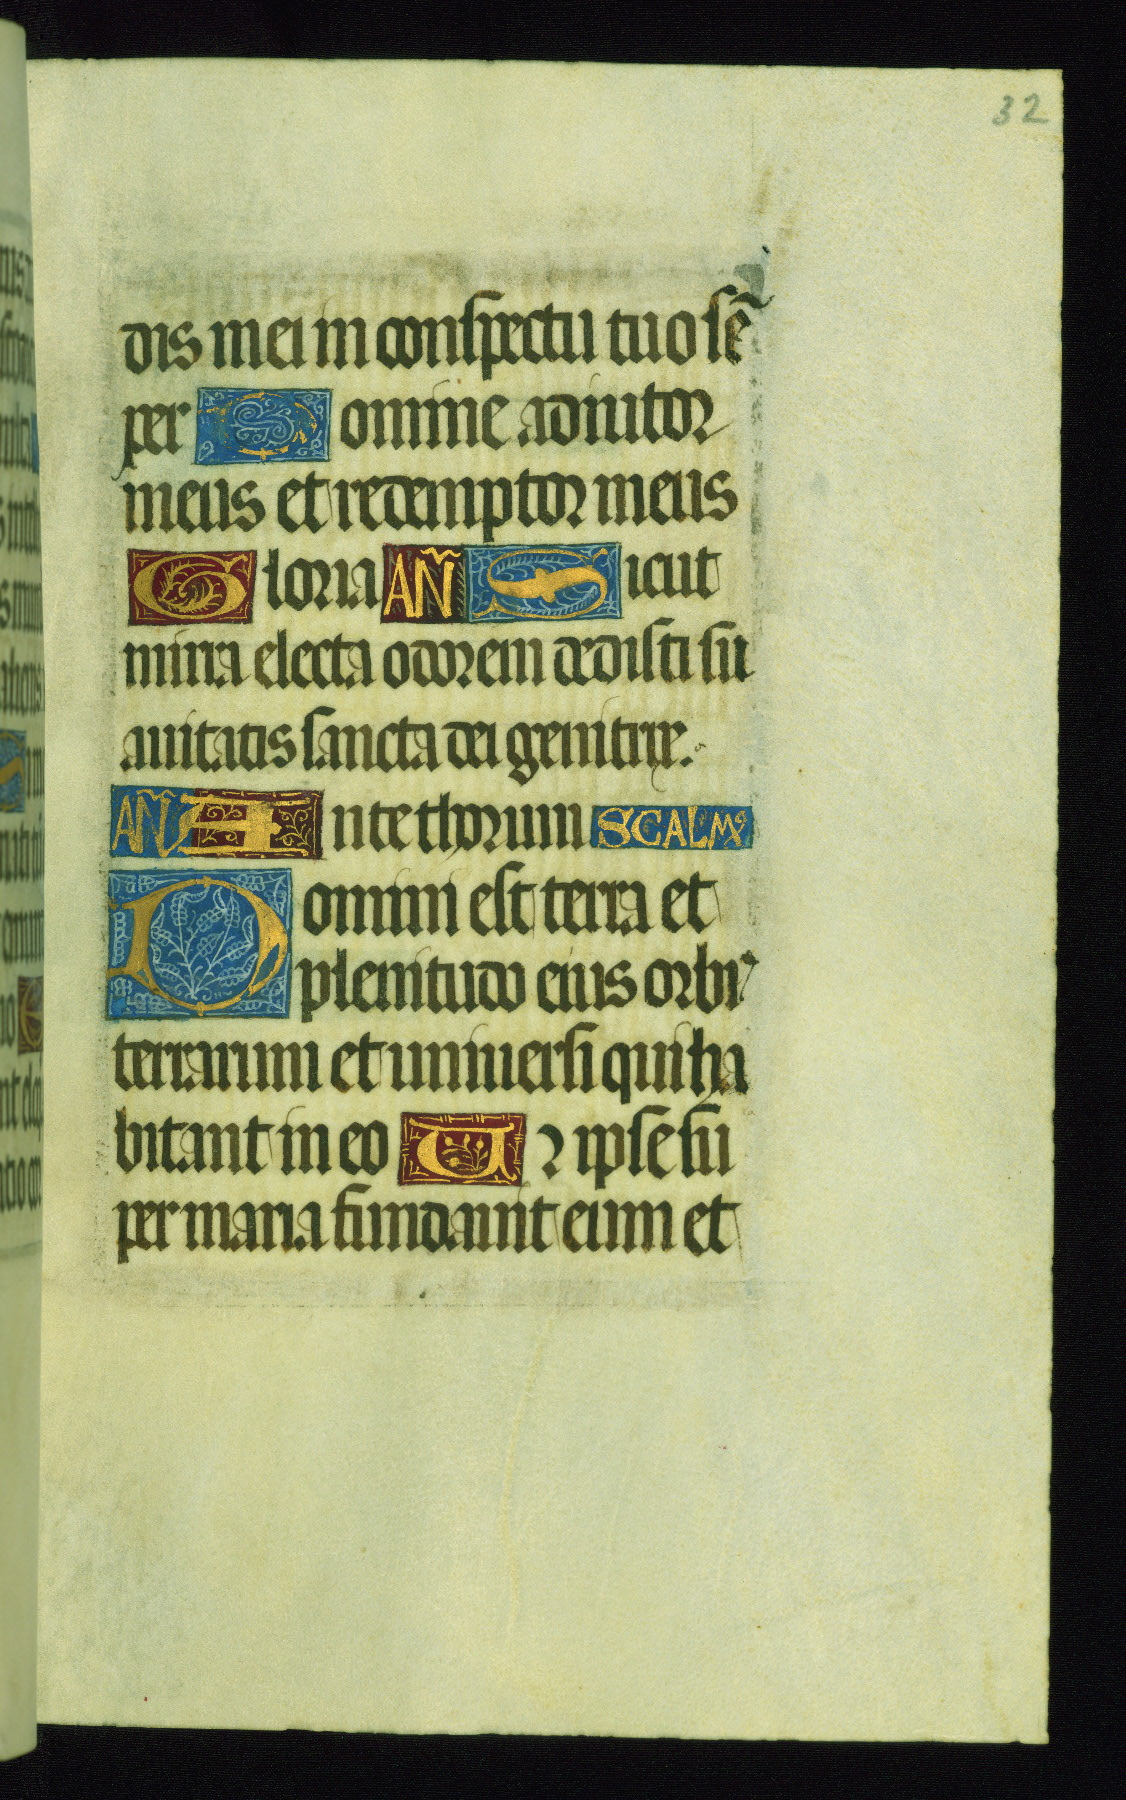 32
dis mei in conspectu tuo sē
per Domine adiutor
meus et redemptor meus
Gloria AÑ Sicut
mirra electa odorem dedisti su
auitatis sancta dei genitrix.
AÑ Ante thorum SCALM9
Domini est terra et
plenitudo eius orbis
terrarum et uniuersi qui ha
bitant in eo Quia ipse su
per maria fundauit eum et